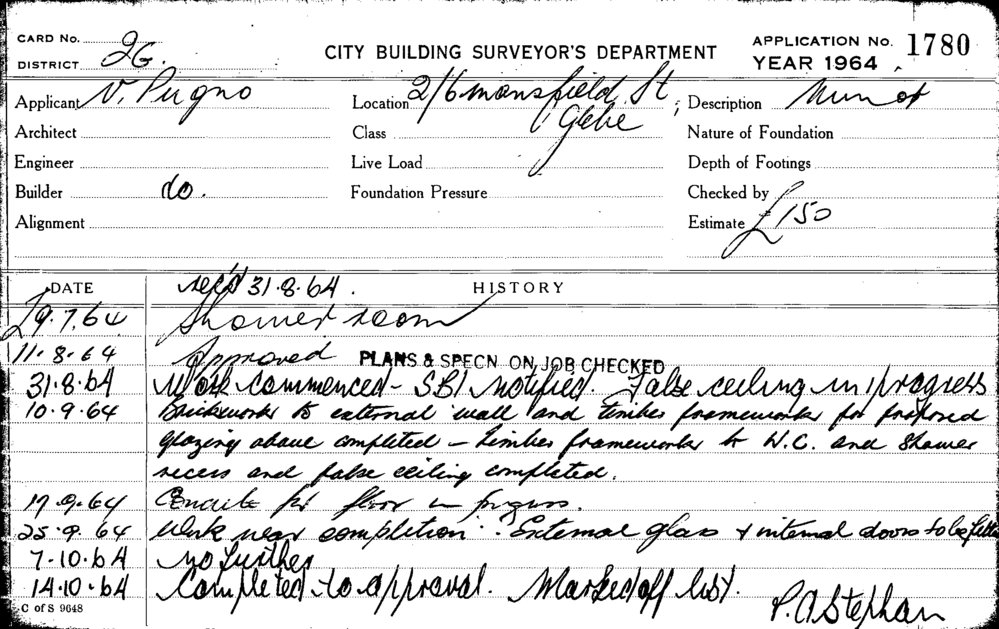 CARD No.
DISTRICT 26.
CITY BUILDING SURVEYOR'S DEPARTMENT
APPLICATION No. 1780
YEAR 1964
Applicant V. Pugno
Location 2/6 Mansfield St,
Glebe
Description Minor
Architect
Class
Nature of Foundation
Engineer
Live Load
Depth of Footings
Builder do.
Foundation Pressure
Checked by
Alignment
Estimate £150
DATE
rec'd 31.8.64.
HISTORY
9.7.64 Shower room
11.8.64 Approved PLANS & SPECN ON JOB CHECKED
31.8.64 Work commenced - SBI notified. False ceiling in progress
10.9.64 Brickwork to external wall and timber framework for proposed
glazing above completed - timber framework to W.C. and shower
recess and false ceiling completed.
17.9.64 Concrete for floor in progress.
25.9.64 Work near completion. External glass & internal doors to be fitted
7.10.64 No further
14.10.64 Completed to approval. Marked off list.
C of S 9648
P. A Stephan